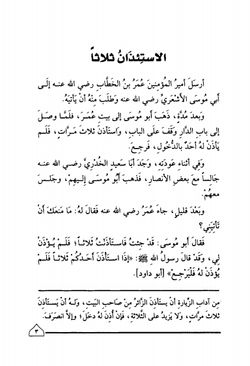 الاستِئذَانُ ثلاثاً
أرسَلَ أميرُ المُؤمِنينَ عُمَرُ بنُ الخَطَّابِ رضي الله عنـه إلَـى
أبي مُوسَى الأَشعَرِيِّ رضي الله عنه وطَلَبَ مِنهُ أنْ يَأتِيَهُ.
وبَعدَ مُدَّةٍ، ذَهَبَ أبو مُوسَى إلى بَيتِ عُمَرَ، فَلَمَّا وصَلَ
إلى بابِ الدَّارِ وَقَفَ على البابِ، واستَأذَنَ ثَلاثَ مَرَّاتٍ، فَلَـم
يَأذَنْ لهُ أحَدٌ بالدُّخُولِ، فَرجِعَ.
وفي أثناءِ عَودَتِهِ، وَجَدَ أبا سَعيدٍ الخُدْرِيَّ رضي الله عنه
جَالِساً مَعَ بَعضِ الأنصارِ، فَذهَبَ أبو مُوسَى إليـهِم، وجَلَـسَ
معَهُم.
وبَعْدَ قَليلٍ، جاءَ عُمَرُ رضي الله عنه فَقالَ لهُ: ما مَنَعَكَ أنْ
تَأتِيَنِي؟
فَقالَ أبو مُوسَى: لَقَد جِئتُ فَاستَأذَنتُ ثَلاثاً؛ فَلَـمْ يُـؤذَنْ
لِي، وقَدْ قالَ رسولُ الله ﷺ: «إذا استَـأذَنَ أحَدُكُم ثَلاثـاً فَلَـم
يُؤذَنْ لهُ فَلْيَرجِعْ» [أبو داود].
مِن آدابِ الزِّيارةِ أنْ يَستَأذِنَ الزَّائِرُ مِنْ صاحبِ البَيتِ، ولَـهُ أنْ يَستَأذِنَ
ثَلاثَ مَرَّاتٍ، ولا يَزيدُ على الثَّلاثَةِ، فَإنْ أُذِنَ لهُ دخَلَ؛ وإلَّا انصَرَفَ.
٣